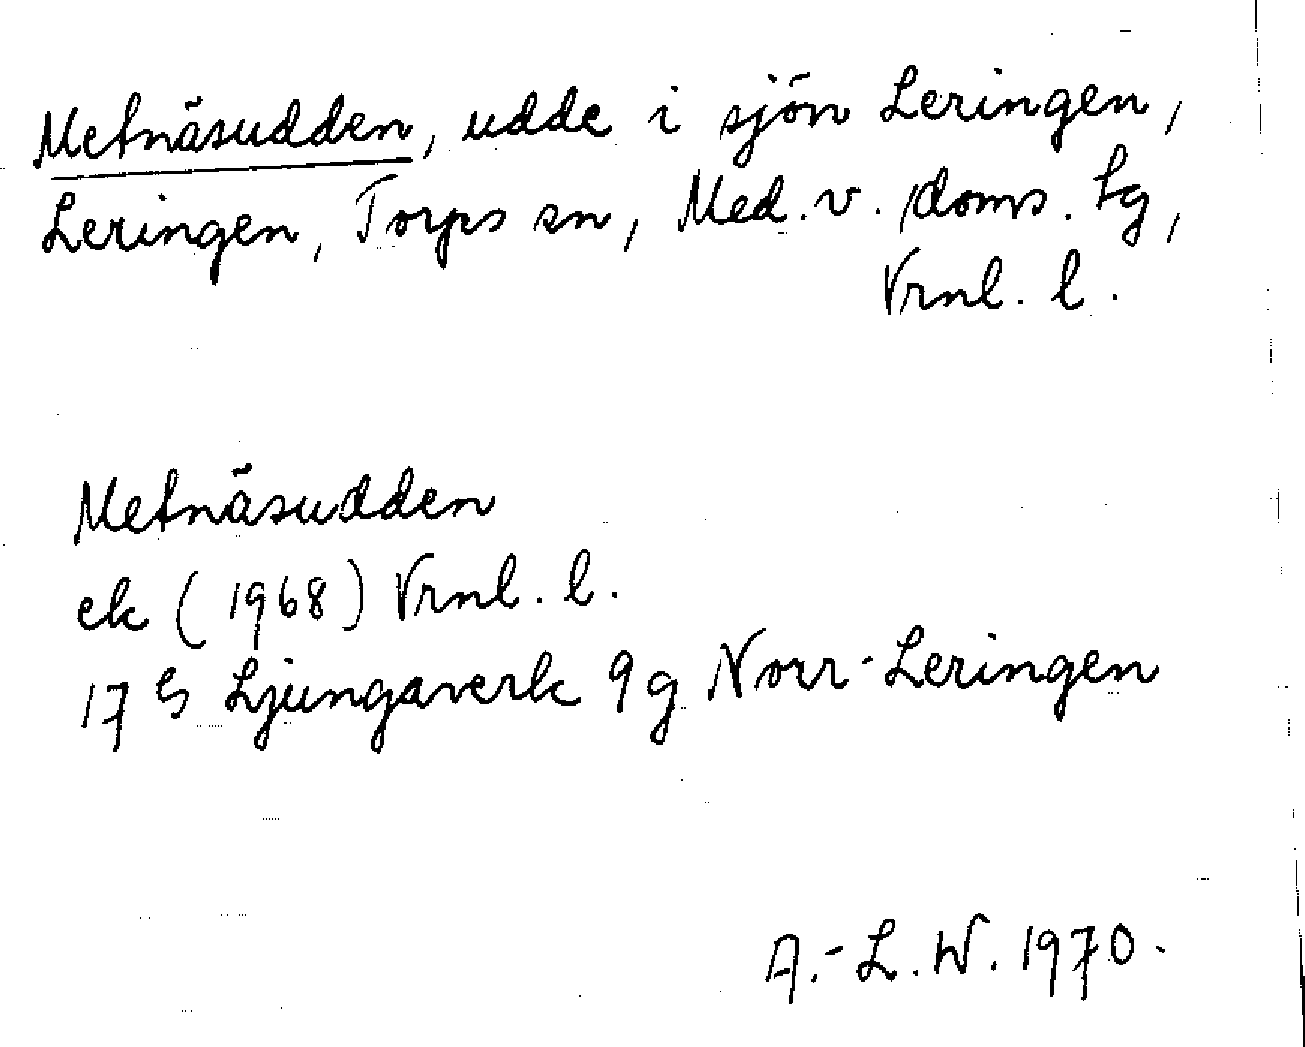 Metnäsudden, udde i sjön Leringen,
Leringen, Torps sn, Med. v. doms. tg,
Vrnl. l.
Metnäsudden
ek (1968) Vrnl. l.
17 G Ljungaverk 9 g Norr-Leringen
A.-L.W. 1970.